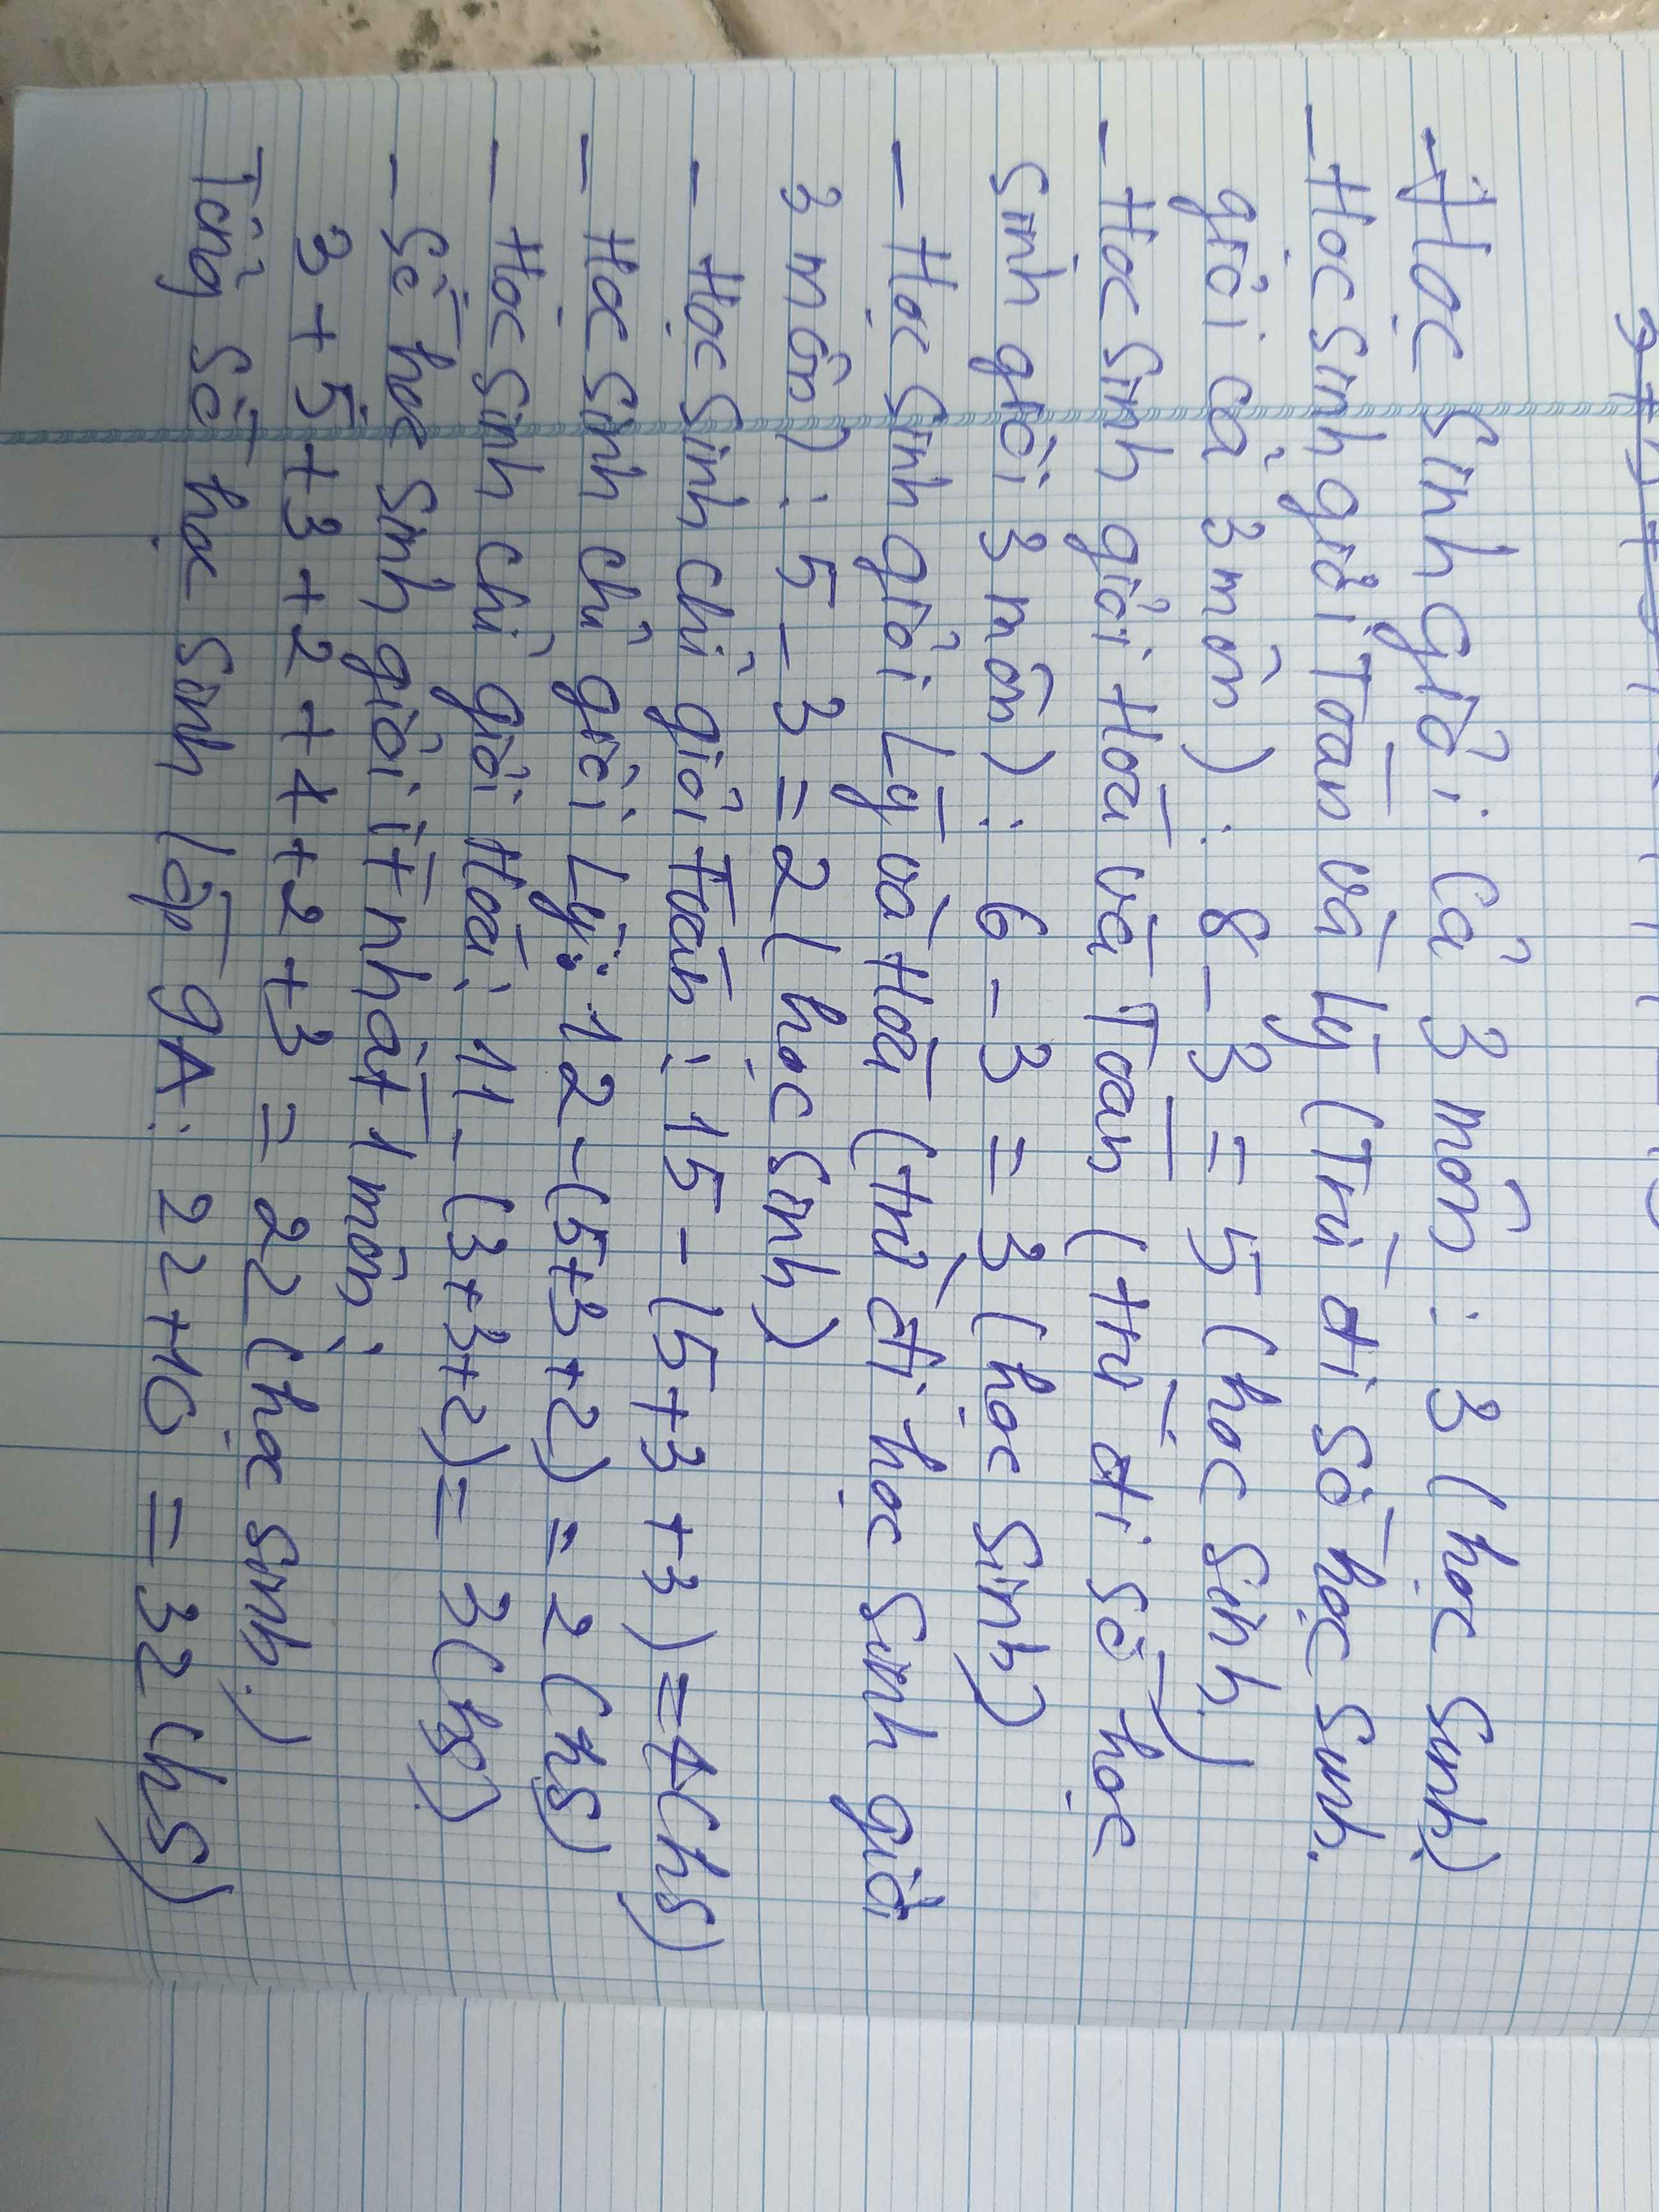 - Học sinh giỏi cả 3 môn : 3 (học sinh)
- Học sinh giỏi Toán và Lý (Trừ đi số học sinh
giỏi cả 3 môn) : 8 - 3 = 5 (học sinh)
- Học sinh giỏi Hoá và Toán (trừ đi số học
sinh giỏi 3 môn) : 6 - 3 = 3 (học sinh)
- Học sinh giỏi Lý và Hoá (trừ đi học sinh giỏi
3 môn) : 5 - 3 = 2 (học sinh)
- Học sinh chỉ giỏi Toán : 15 - (5+3+3) = 4 (hs)
- Học sinh chỉ giỏi Lý : 12 - (5+3+2) = 2 (hs)
- Học sinh chỉ giỏi Hoá : 11 - (3+3+2) = 3 (hs)
- Số học sinh giỏi ít nhất 1 môn :
3 + 5 + 3 + 2 + 4 + 2 + 3 = 22 (học sinh)
Tổng số học sinh lớp 9A : 22 + 10 = 32 (hs)